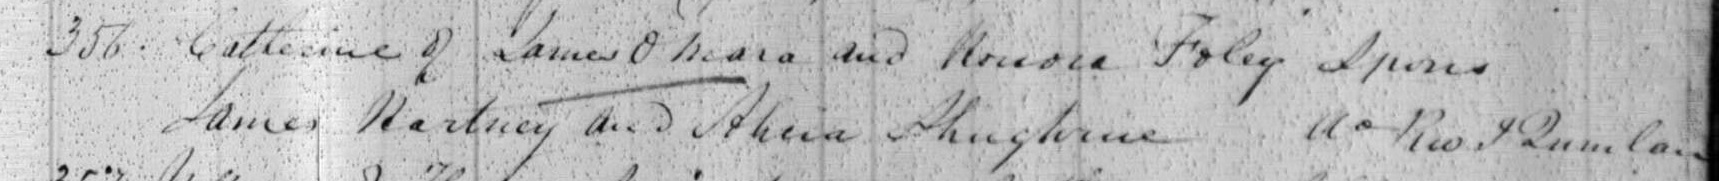 356. Catherine of James O Meara and Honora Foley Spons
James Hartney and Alicia Shughrue Rev J Quinlan